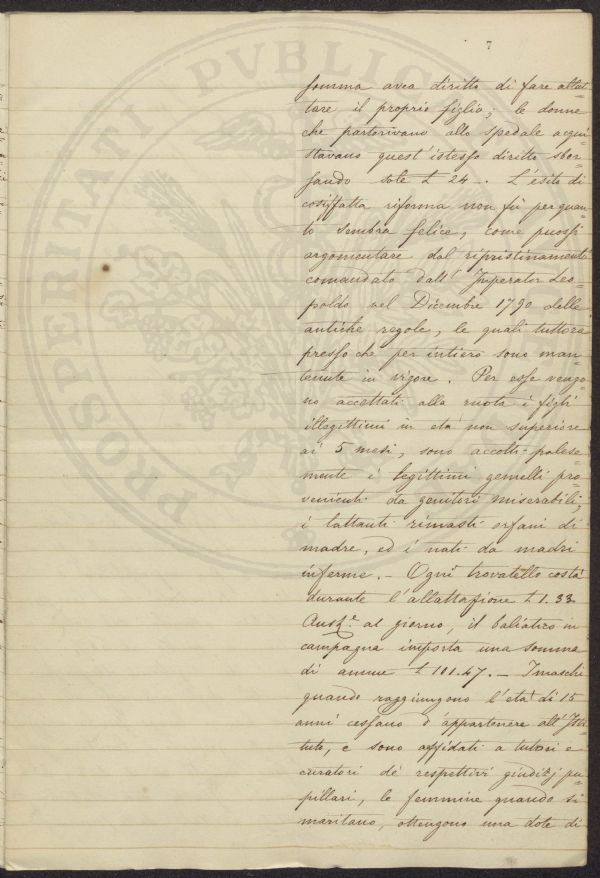 7
somma avea diritto di fare allat-
tare il proprio figlio; le donne
che partorivano allo spedale acqui-
stavano quest'istesso diritto sbor-
sando sole £ 24 -. L'esito di
cosiffatta riforma non fù per quan-
to sembra felice, come puossi
argomentare dal ripristinamento
comandato dall'Imperator Leo-
poldo nel Dicembre 1790 delle
antiche regole, le quali tuttora
presso che per intiero sono man-
tenute in vigore. Per esse vengo
no accettati alla ruota i figli
illegittimi in età non superiore
ai 5 mesi, sono accolti palese-
mente i legittimi gemelli pro-
venienti da genitori miserabili,
i lattanti rimasti orfani di
madre, ed i nati da madri
inferme. - Ogni trovatello costa
durante l'allattazione £ 1.33
Aust.e al giorno, il baliatico in
campagna importa una somma
di annue £ 101.47. - I maschi
quando raggiungono l'età di 15
anni cessano d'appartenere all'Isti-
tuto, e sono affidati a tutori e
curatori de' respettivi giudizj pu-
pillari, le femmine quando si
maritano, ottengono una dote di
PROSPERITATI PVBLICAE